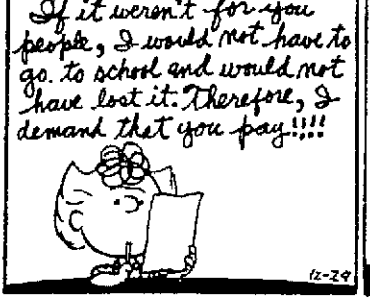 If it weren't for you
people, I would not have to
go to school and would not
have lost it. Therefore, I
demand that you pay!!!!
12-24